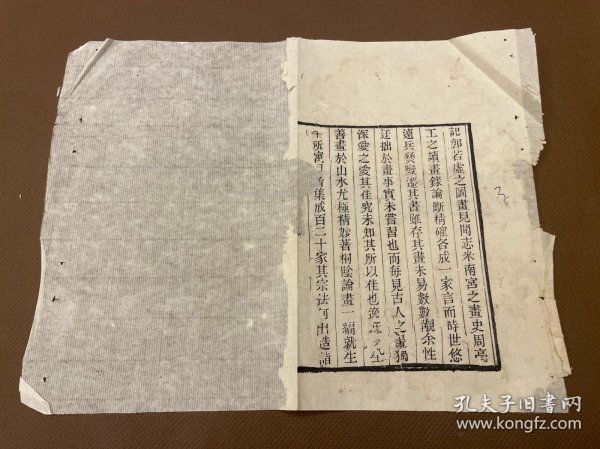 記郭若虛之圖畫見聞志米南宮之畫史周亮
工之讀畫錄論斷精確各成一家言而時世悠
遠兵燹變遷其書雖存其畫未易數數觀余性
迂拙於畫事實未嘗習也而每見古人之畫獨
深愛之愛其佳究未知其所以佳也
善畫於山水尤極精妙著桐陰論畫一編就生
平所寓目者集成百二十家其宗法何出造詣
孔夫子旧书网
book.kongfz.com